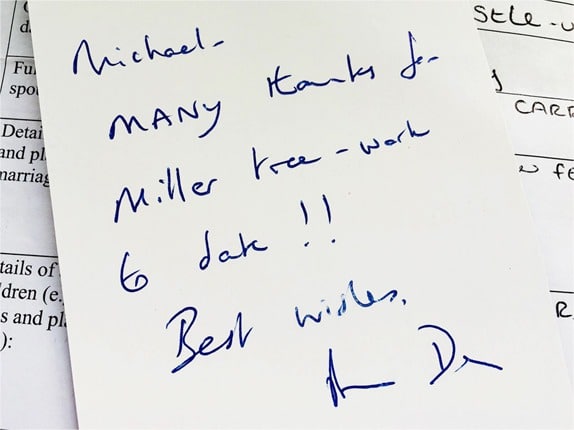 Michael-
MANY thanks for
Miller tree-work
to date !!
Best wishes.
Detai
and pl
marriag
tails of
dren (e.
s and pl
):
Fu
spou
CARR
R